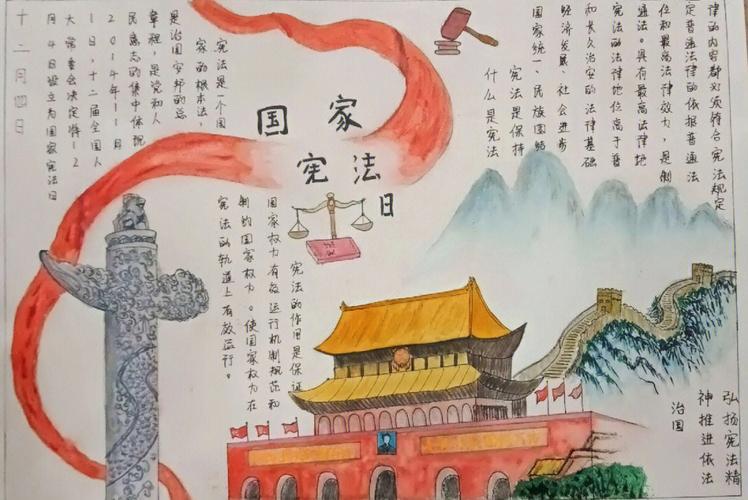 国家
宪法日
宪法是一个国
家的根本法,
是治国安邦的总
章程,是党和人
民意志的集中体现
2014年11月
1日,十二届全国人
大常委会决定将12
月4日设立为国家宪法日
十二月四日
什么是宪法
宪法是保持
国家统一、民族团结
经济发展、社会进步
和长久治安的法律基础
宪法的法律地位高于普
通法。具有最高法律地
位和最高法律效力,是制
定普通法律的依据普通法
律的内容都必须符合宪法规定
宪法的作用是保证
国家权力有效运行机制规范和
制约国家权力。使国家权力在
宪法的轨道上有效运行。
弘扬宪法精
神推进依法
治国